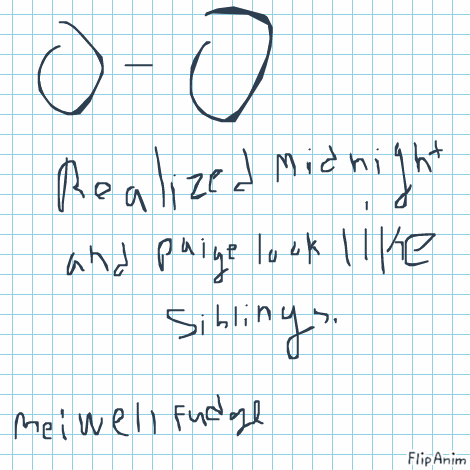 O-O
Realized Midnight
and paige look like
Siblings.
mei well Fudge
FlipAnim